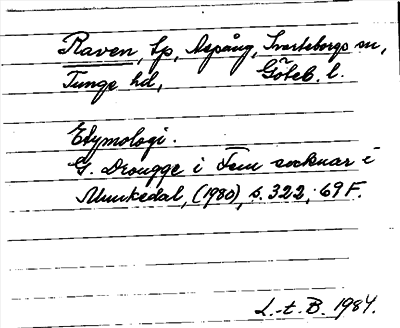 Raven, Lp, Aspång, Svarteborgs sn,
Tunge hd, Göteb. l.
Etymologi.
G. Drougge i Fem socknar i
Munkedal, (1980), s. 322; 69F.
L.-t. B. 1984.